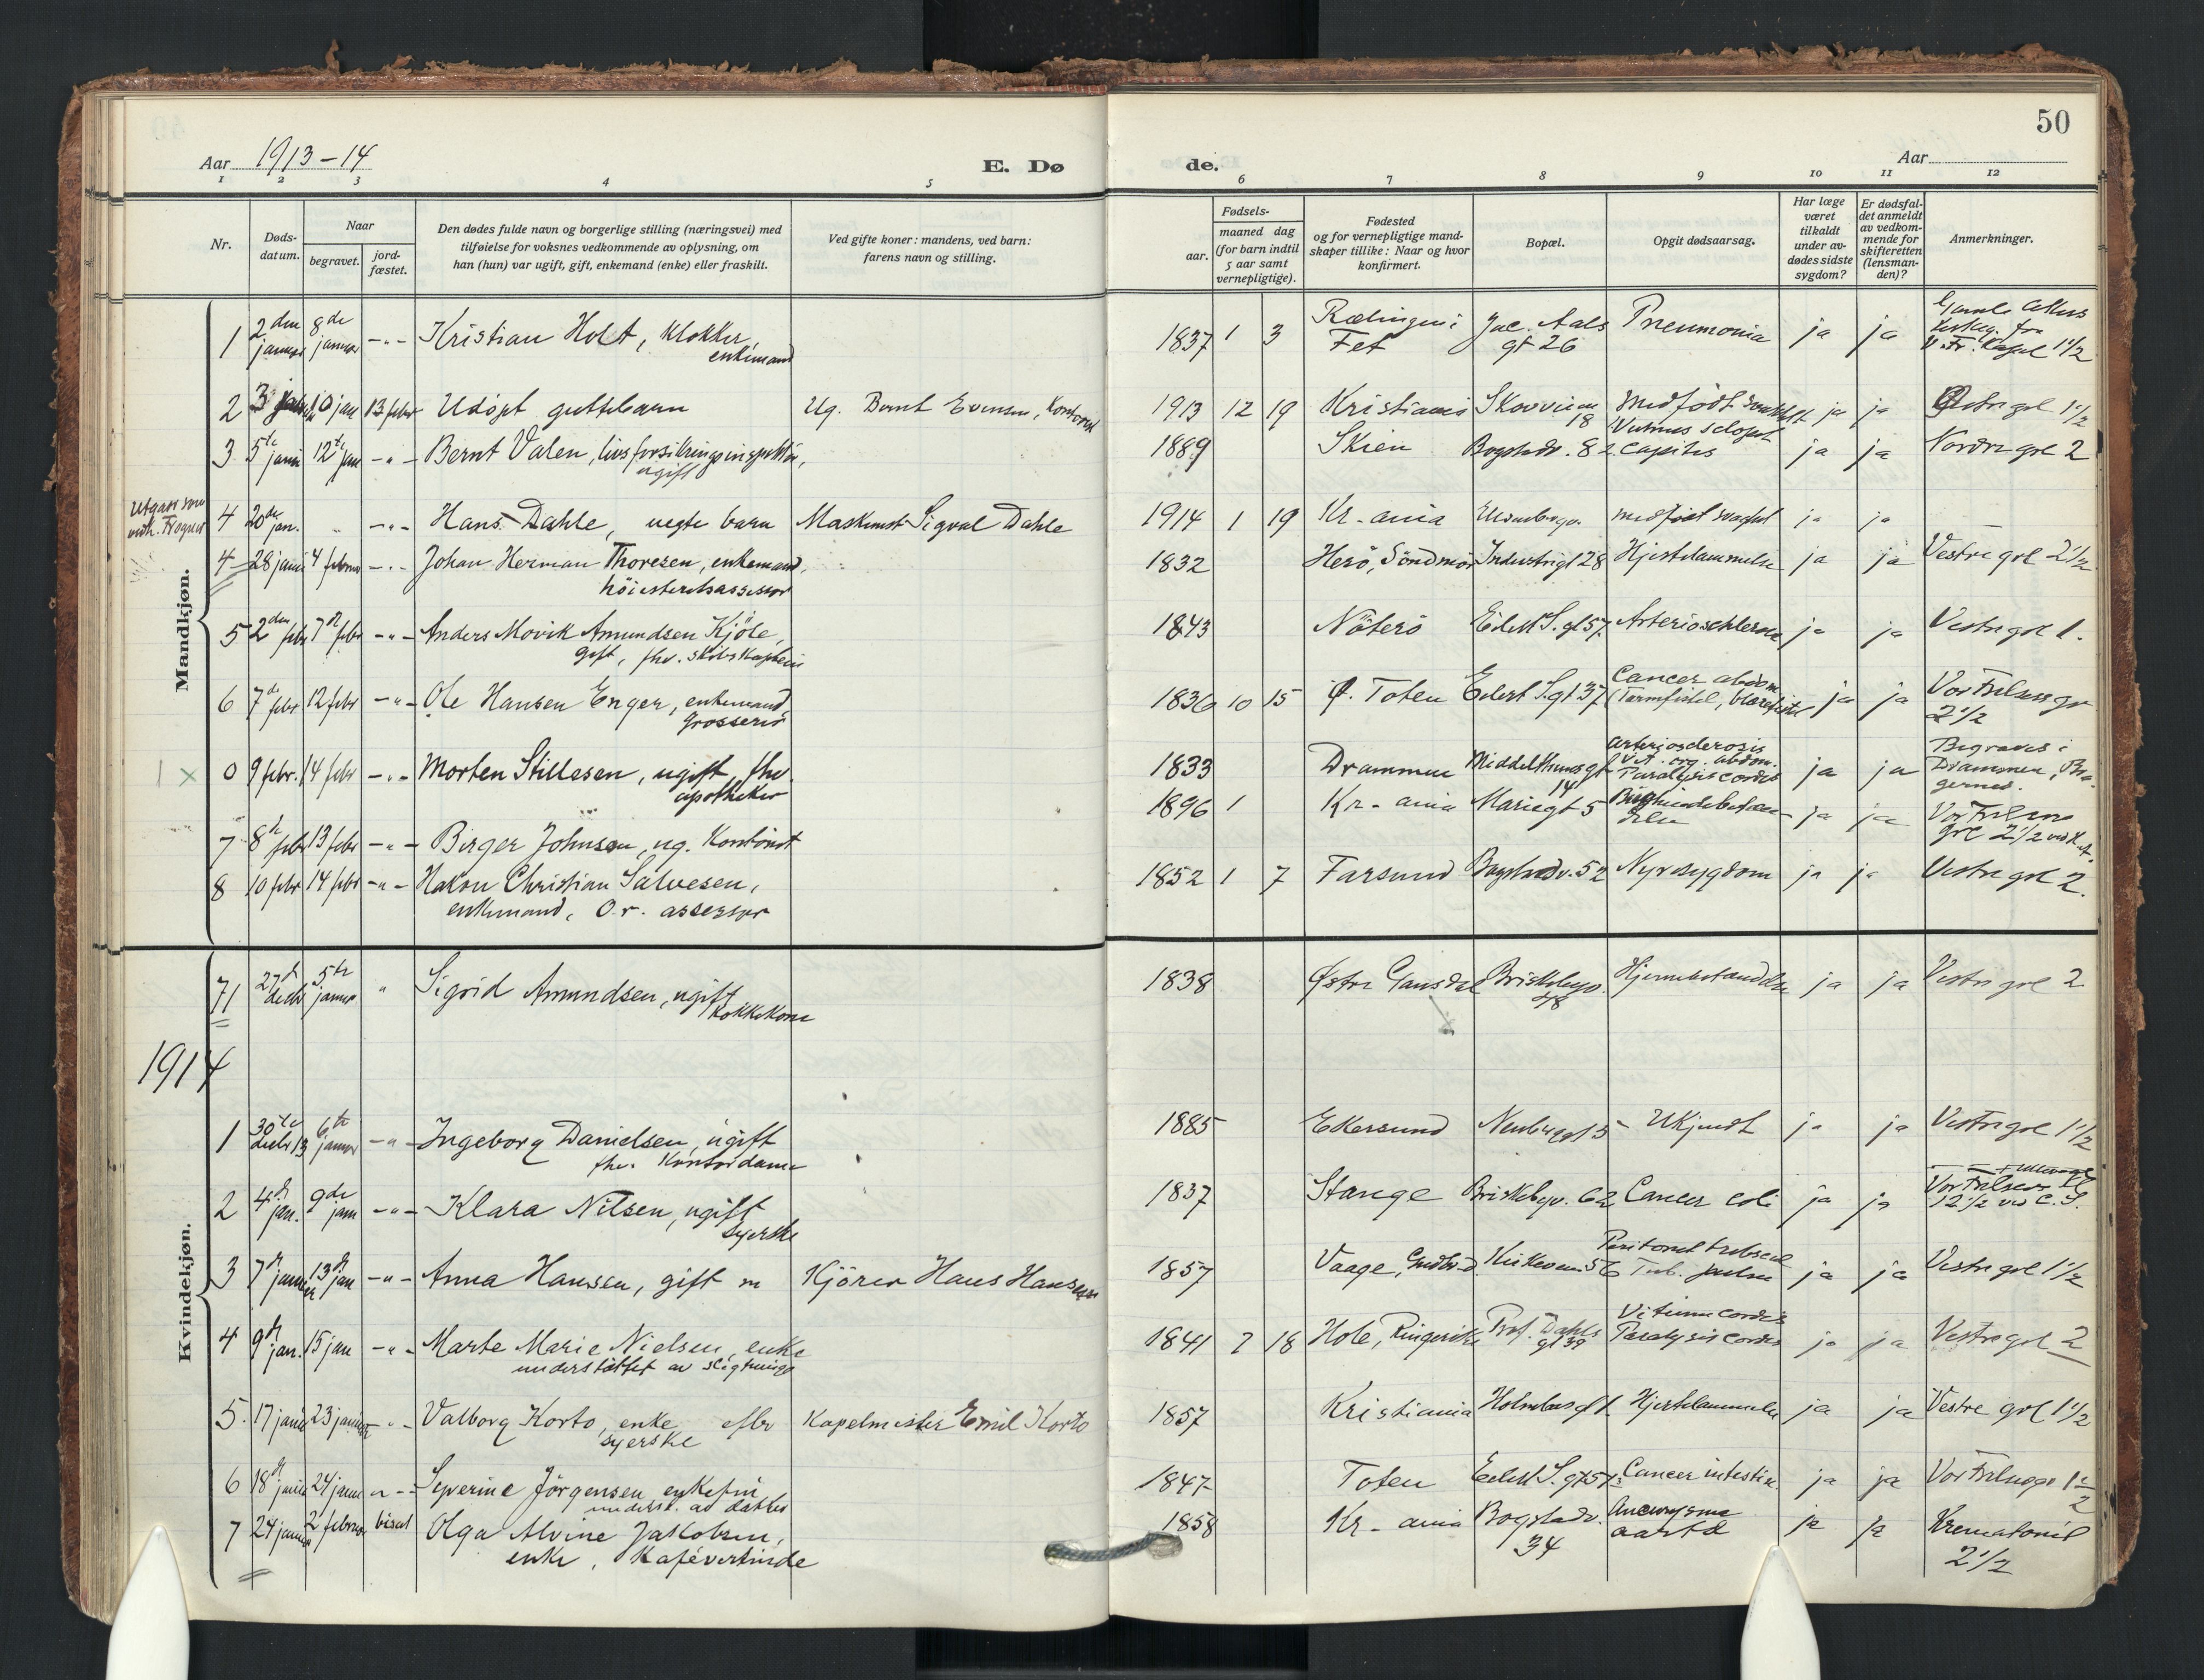 50
Aar 1913-14
E. Dø
de.
Aar
1 2 3 4 5 6 7 8 9 10 11 12
Nr.
Døds-
datum.
Naar
begravet.
jord-
fæstet.
Den dødes fulde navn og borgerlige stilling (næringsvei) med
tilføielse for voksnes vedkommende av oplysning, om
han (hun) var ugift, gift, enkemand (enke) eller fraskilt.
Ved gifte koner: mandens, ved barn:
farens navn og stilling.
Fødsels-
aar.
maaned dag
(for barn indtil
5 aar samt
vernepligtige).
Fødested
og for vernepligtige mand-
skaper tillike: Naar og hvor
konfirmert.
Bopæl.
Opgit dødsaarsag.
Har læge
været
tilkaldt
under av-
dødes sidste
sygdom?
Er dødsfal-
det anmeldt
av vedkom-
mende for
skifteretten
(lensman-
den)?
Anmerkninger.
Mandkjøn.
1 2den januar 8de januar -"- Kristian Holt, klokker, enkemand 1837 1 3 Rælingen i Fet Jac. Aals gt 26 Pneumonia ja ja Gamle Akers
Kapel 1 1/2
2 3 10 jan 13 febr Udøpt guttebarn Ug. Bernt Evensen, Kontorist 1913 12 19 Kristiania 18 medfødt svakhet ja ja Vestre grl 1 1/2
3 5te januar 12te jan -"- Bernt Valen, livsforsikringsinspektør, ugift 1889 Skien Bogstadv. 82 Vulnus sclopet capitis ja ja Nordre grl 2
4 20de jan. -"- Hans Dahle, uegte barn Maskinist Sigval Dahle 1914 1 19 Kr-ania medfødt svaghet ja ja
4 28 januar 4 februar -"- Johan Herman Thoresen, enkemand, høiesteretsassessor 1832 Herö, Söndmör Industrigt 28 Hjertelammelse ja ja Vestre grl 2 1/2
5 2den febr 7de febr -"- Anders Movik Amundsen Kjöle, gift, fhv. skibskaptein 1843 Nöterö Eilert S. gt 57 Arterioschlerose ja ja Vestre grl 1.
6 7de febr 12 febr -"- Ole Hansen Enger, enkemand, grosserer 1836 10 15 Ø. Toten Eilert S. gt 37 Cancer abdom. (Tarmfistel, blærefistel ja ja Vor Frelsers gr 2 1/2
1 x 0 9 febr. 14 febr -"- Morten Stillesen, ugift, fhv. apotheker 1833 Drammen Middelthunsgt 14 Arteriosclerosis
Paralysis cordis ja ja Begraves i Drammen, Bragernes.
7 8de febr 13 febr -"- Birger Johnsen, ug. Kontorist 1896 1 Kr-ania Mariegt 5 ja ja Vor Frelsers grl 2 1/2
8 10 febr 14 febr -"- Hakon Christian Salvesen, enkemand, O.r. assessor 1852 1 7 Farsund Bogstadv. 52 Nyresygdom ja ja Vestre grl 2.
Kvindekjøn.
71 27de decbr 5te januar " Sigrid Amundsen, ugift kokkekone 1838 Østre Gausdal Briskebyv. 48 Hjernebetændelse ja ja Vestre grl 2
1914
1 30te decbr 13 6te januar -"- Ingeborg Danielsen, ugift fhv. Kontordame 1885 Ekersund Neubergt 5 Ukjendt ja ja Vestre grl 1 1/2
2 4de jan. 9de jan -"- Klara Nilsen, ugift syerske 1837 Stange Briskebyv. 62 Cancer coli ja ja Vor Frelsers
12 1/2 ved C. S.
3 7de januar 13de jan -"- Anna Hansen, gift m Kjörer Hans Hansen 1857 Vaage, Gudbr.d Kirkeveien 56 ja ja Vestre grl 1 1/2
4 9de jan. 15 jan -"- Marte Marie Nielsen, enke understöttet av slegtninge 1841 7 18 Hole, Ringerike Prof. Dahls gt 39 Vitium cordis Paralysis cordis ja ja Vestre grl 2
5. 17 januar 23 januar -"- Valborg Korto, enke efter syerske Kapelmester Emil Korto 1857 Kristiania Holmboes gt 1 Hjertelammelse ja ja Vestre grl 1 1/2
6 18de januar 24 januar -"- Severine Jörgensen, enkefru underst. av datter 1847 Toten Eilert S. gt 57 Cancer intestin. ja ja Vor Frelsers gr 1 1/2
7 24 januar 2 februar bisat Olga Alvine Jakobsen, enke, Kafévertinde 1858 Kr-ania Bogstadv. 34 Aneurysma aorta ja ja Krematoriet 2 1/2